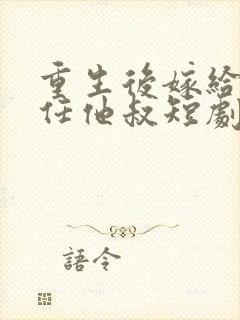 重生後嫁給
任他叔短劇
語令